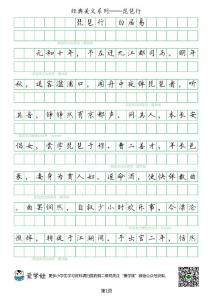 经典美文系列——琵琶行
琵琶行 白居易
元和十年,予左迁九江郡司马。明年
秋,送客湓浦口,闻舟中夜弹琵琶者,听
其音,铮铮然有京都声。问其人,本长安
倡女,尝学琵琶于穆、曹二善才,年长色
衰,委身为贾人妇。遂命酒,使快弹数曲
。曲罢悯然,自叙少小时欢乐事,今漂沦
憔悴,转徙于江湖间。予出官二年,恬然
爱学娃
第1页